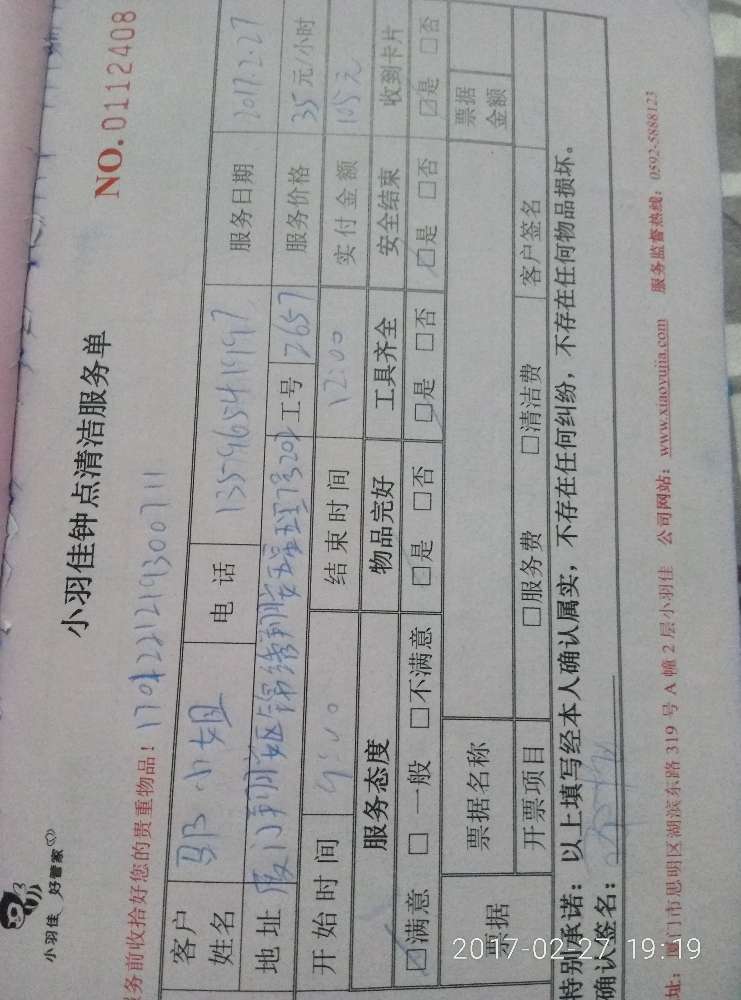 小羽佳 好管家
小羽佳钟点清洁服务单
NO.0112408
务前收拾好您的贵重物品!
客户姓名 小姐 电话 服务日期 2017.2.27
地址 工号 2657 服务价格 35元/小时
开始时间 9:00 结束时间 12:00 实付金额 105元
服务态度 物品完好 工具齐全 安全结束 收到卡片
☑满意 □一般 □不满意 ☑是 □否 ☑是 □否 ☑是 □否 ☑是 □否
票据 票据名称 票据金额
开票项目 □服务费 □清洁费 客户签名
特别承诺:以上填写经本人确认属实,不存在任何纠纷,不存在任何物品损坏。
确认签名:
址:厦门市思明区湖滨东路319号A幢2层小羽佳 公司网站:www.xiaoyujia.com 服务监督热线:0592-5888123
2017-02-27 19:19